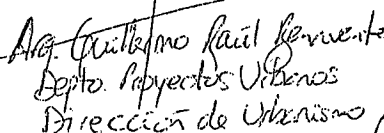 Arq. Guillermo Raúl Benvente
Depto. Proyectos Urbanos
Dirección de Urbanismo